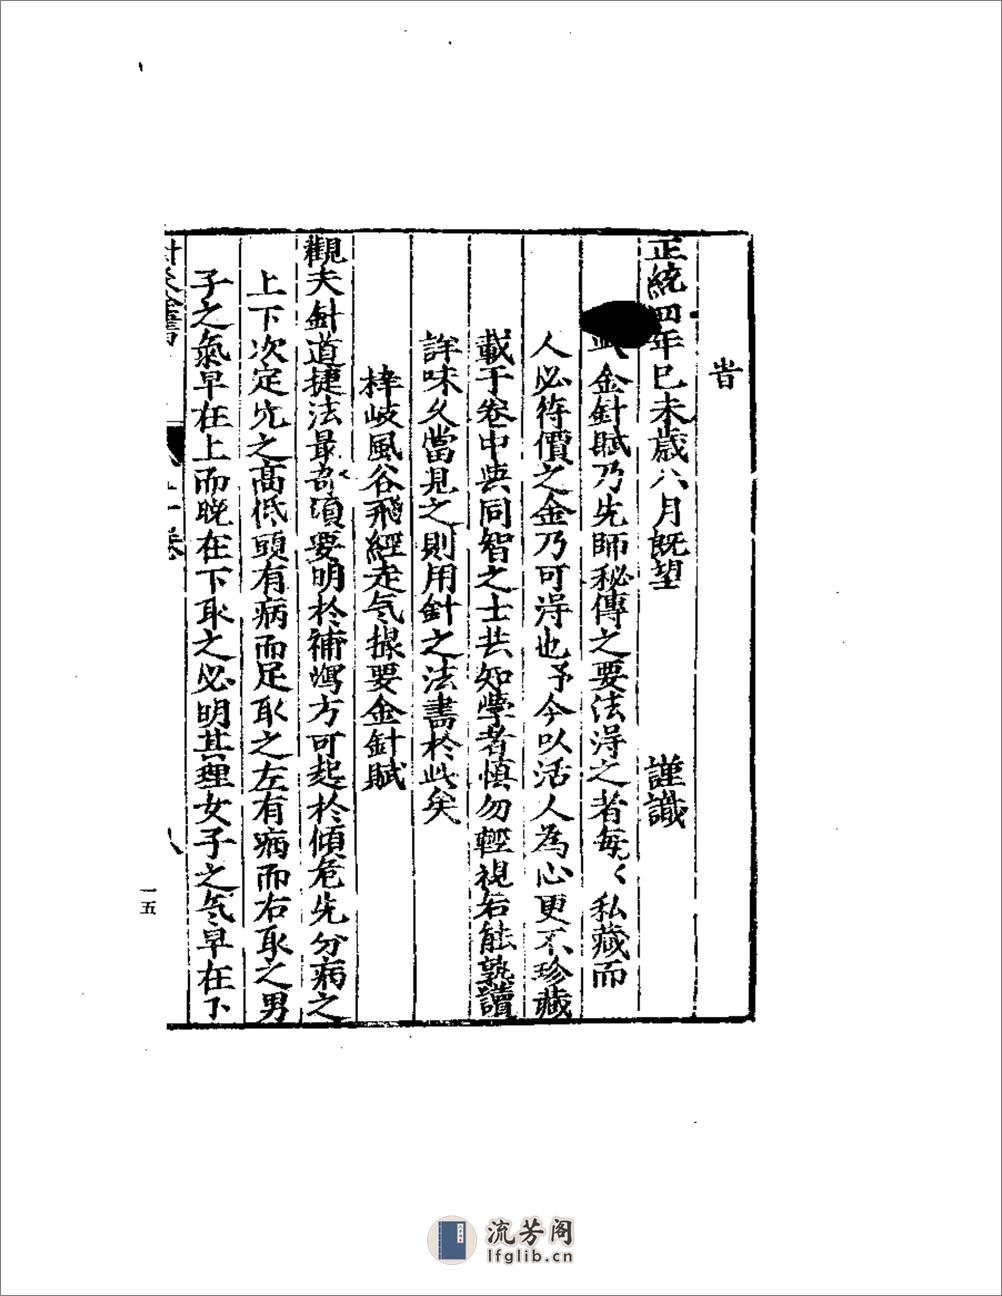 旹
正統四年巳未歲八月旣望 謹識
金針賦乃先師秘傳之要法淂之者每〻私藏而
人必待價之金乃可淂也予今以活人為心更不珍藏
載于卷中與同智之士共知學者慎勿輕視若能熟讀
詳味久當見之則用針之法盡於此矣
梓岐風谷飛經走气撮要金針賦
觀夫針道捷法最竒須要明於補瀉方可起於傾危先分病之
上下次定穴之高低頭有病而足取之左有病而右取之男
子之氣早在上而晚在下取之必明其理女子之气早在下
一五
流芳阁
lfglib.cn